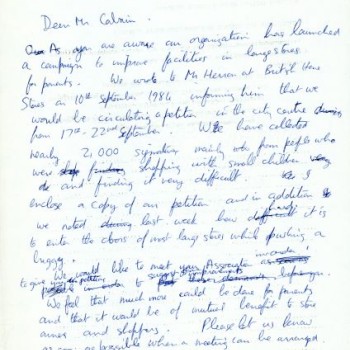 Dear Mr Calvin.
As you are aware our organization has launched
a campaign to improve facilities in large stores
for parents. We wrote to Mr Herron at British Home
Stores on 10th September 1984 informing him that we
would be circulating a petition in the city centre
from 17th - 22nd September. We have collected
nearly 2,000 signatures mainly from people who
were shopping with small children
and finding it very difficult. I
enclose a copy of our petition and in addition
we noted last week how it is
to enter the doors of most large stores while pushing a
buggy.
We would like to meet your Association in order
to give to
We feel that much more could be done for parents
and that it would be of mutual benefit to store
and shoppers. Please let us know
as soon as possible when a meeting can be arranged.